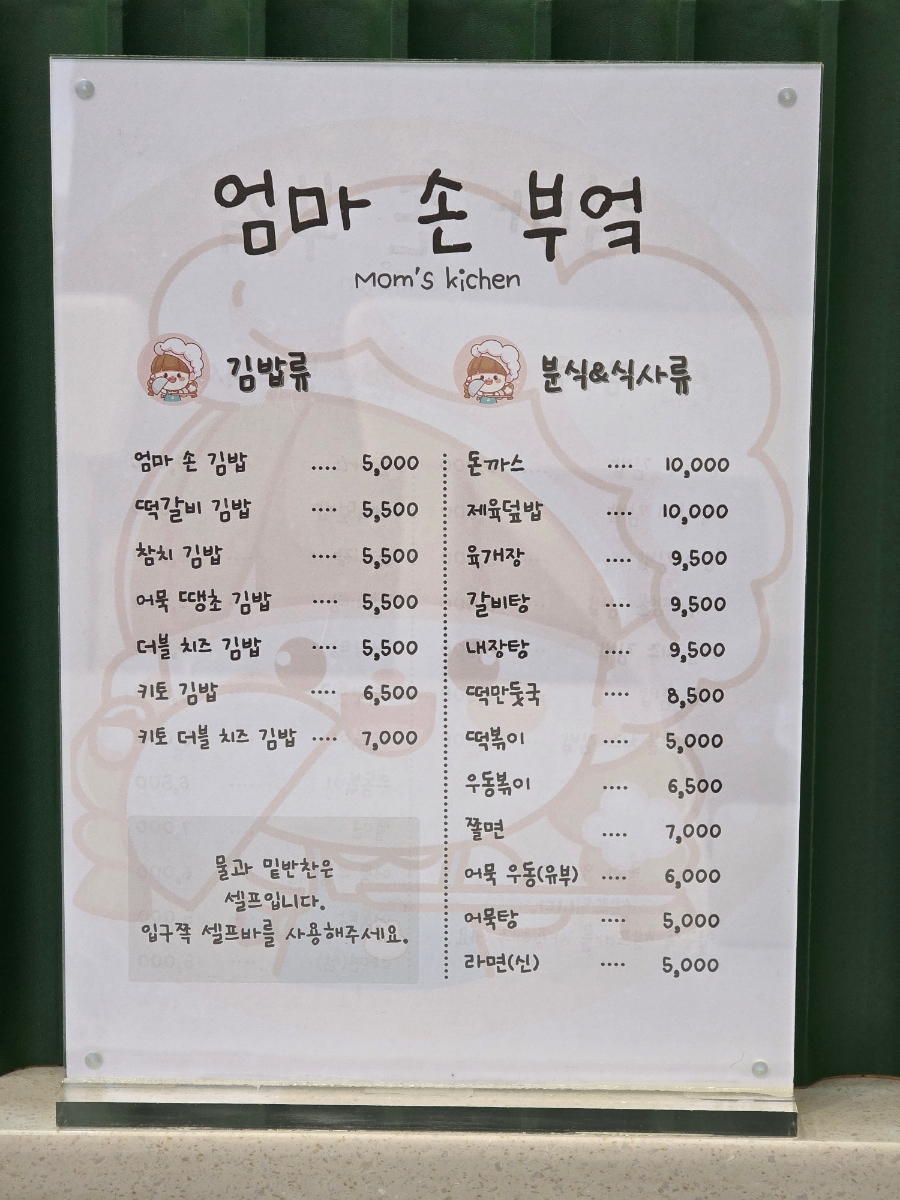 엄마 손 부엌
Mom's kichen
김밥류
엄마 손 김밥 .... 5,000
떡갈비 김밥 .... 5,500
참치 김밥 .... 5,500
어묵 땡초 김밥 .... 5,500
더블 치즈 김밥 .... 5,500
키토 김밥 .... 6,500
키토 더블 치즈 김밥 .... 7,000
물과 밑반찬은
셀프입니다.
입구쪽 셀프바를 사용해주세요.
분식&식사류
돈까스 .... 10,000
제육덮밥 .... 10,000
육개장 .... 9,500
갈비탕 .... 9,500
내장탕 .... 9,500
떡만둣국 .... 8,500
떡볶이 .... 5,000
우동볶이 .... 6,500
쫄면 .... 7,000
어묵 우동(유부) .... 6,000
어묵탕 .... 5,000
라면(신) .... 5,000